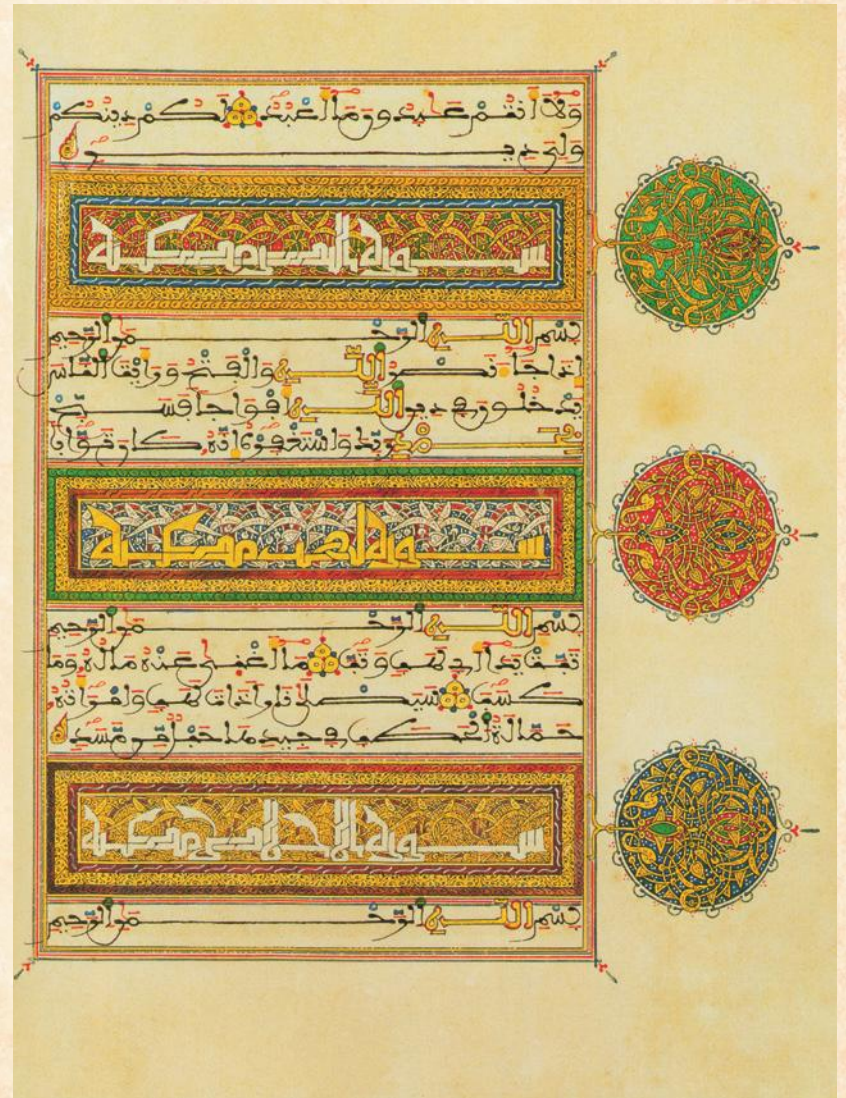 ولا أنتم عبدون ما أعبد لكم دينكم
ولي دين
سورة النصر مكية
بسم الله الرحمن الرحيم
إذا جاء نصر الله والفتح ورأيت الناس
يدخلون في دين الله أفواجا فسبح
بحمد ربك واستغفره إنه كان توابا
سورة لهب مكية
بسم الله الرحمن الرحيم
تبت يدا أبي لهب وتب ما أغنى عنه ماله وما
كسب سيصلى نارا ذات لهب وامرأته
حمالة الحطب في جيدها حبل من مسد
سورة الإخلاص مكية
بسم الله الرحمن الرحيم